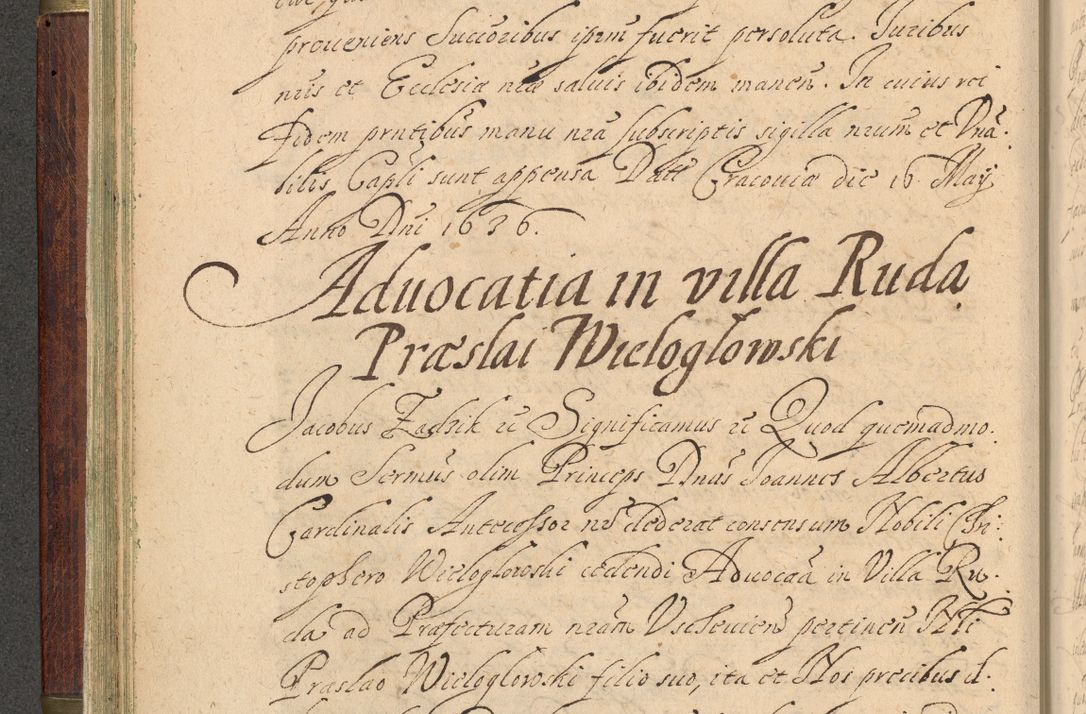 proueniens Succoribus ipsm fuerit persoluta. Iuribus
nris et Ecclesiæ nræ saluis ibidem manen. In cuius rei
Fidem prntibus manu nra subscriptis sigilla nrum et Vnā.
bilis Capli sunt appensa Datt Cracouiæ die 16 May
Anno Dni 1636.
Aduocatia in villa Ruda
Præslai Wieloglowski
Jacobus Zadzik etc Significamus etc Quod quemadmo.
dum Sermus olim Princeps Dnus Joannes Albertus
Cardinalis Antecessor nr dederat consensum Nobili Chri:
stophero Wieloglowski cedendi Aduocaā in Villa Ru.
da ad Præfecturam nram Vscheuien pertinen Nli
Præslao Wieloglowski filio suo, ita et Nos precibus d.